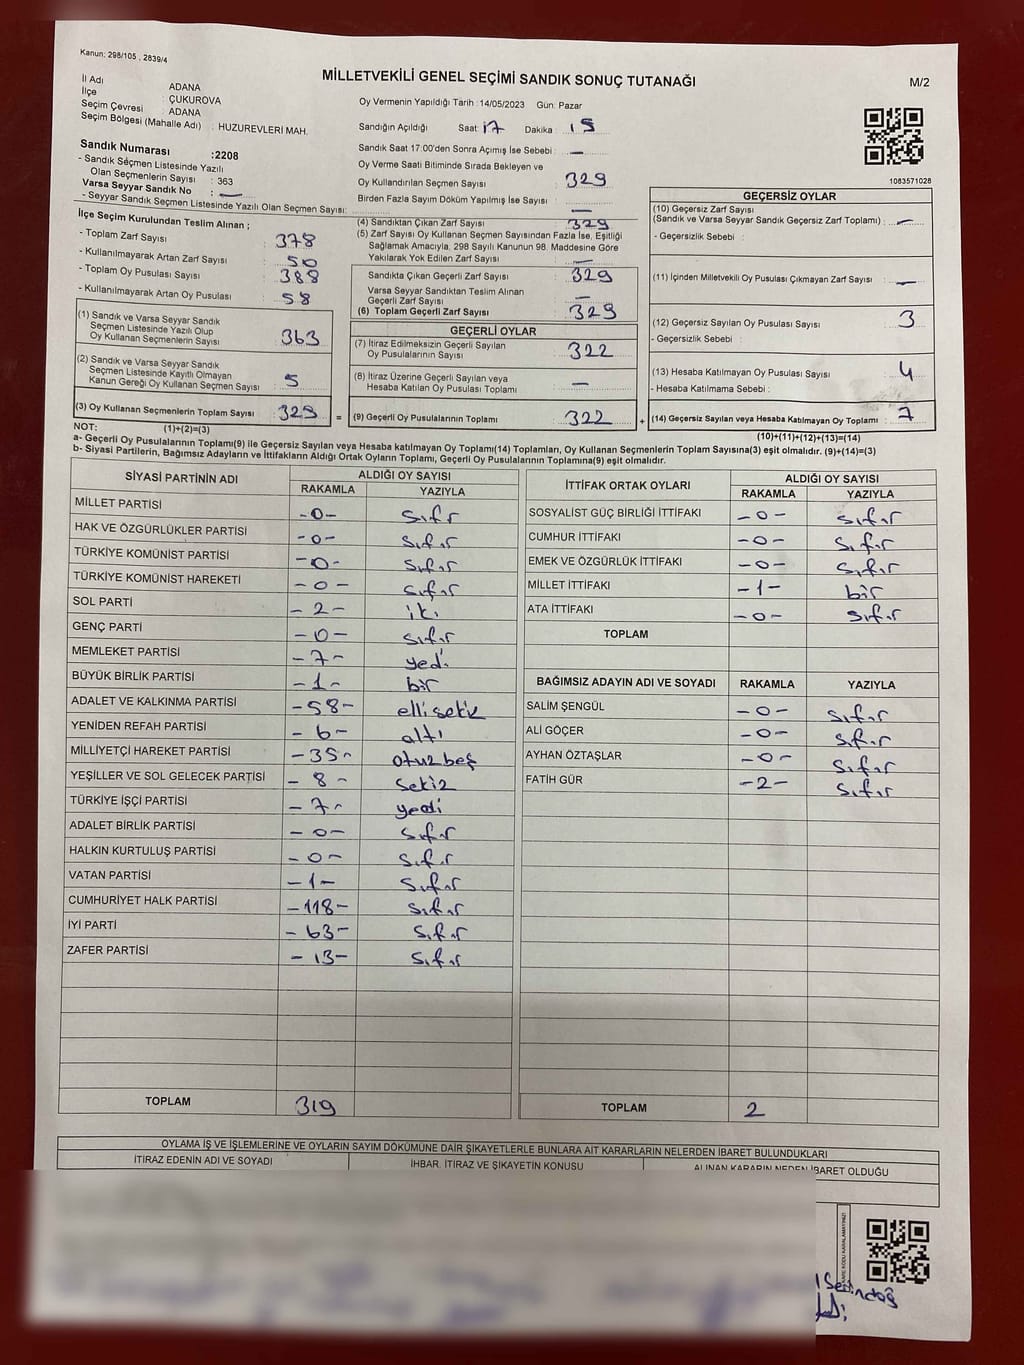 Kanun: 298/105 , 2839/4
MİLLETVEKİLİ GENEL SEÇİMİ SANDIK SONUÇ TUTANAĞI
M/2
İl Adı ADANA
İlçe : ÇUKUROVA
Seçim Çevresi : ADANA
Seçim Bölgesi (Mahalle Adı) : HUZUREVLERİ MAH.
Oy Vermenin Yapıldığı Tarih : 14/05/2023 Gün: Pazar
Sandığın Açıldığı Saat: 17 Dakika : 15
Sandık Saat 17:00'den Sonra Açımış İse Sebebi : —
Oy Verme Saati Bitiminde Sırada Bekleyen ve
Oy Kullandırılan Seçmen Sayısı 329
Birden Fazla Sayım Döküm Yapılmış İse Sayısı —
1083571028
Sandık Numarası :2208
- Sandık Seçmen Listesinde Yazılı
Olan Seçmenlerin Sayısı : 363
Varsa Seyyar Sandık No : —
- Seyyar Sandık Seçmen Listesinde Yazılı Olan Seçmen Sayısı:
İlçe Seçim Kurulundan Teslim Alınan ;
- Toplam Zarf Sayısı : 378
- Kullanılmayarak Artan Zarf Sayısı : 50
- Toplam Oy Pusulası Sayısı : 388
- Kullanılmayarak Artan Oy Pusulası : 58
(1) Sandık ve Varsa Seyyar Sandık
Seçmen Listesinde Yazılı Olup
Oy Kullanan Seçmenlerin Sayısı : 363
(2) Sandık ve Varsa Seyyar Sandık
Seçmen Listesinde Kayıtlı Olmayan
Kanun Gereği Oy Kullanan Seçmen Sayısı : 5
(3) Oy Kullanan Seçmenlerin Toplam Sayısı : 329
(4) Sandıktan Çıkan Zarf Sayısı : 329
(5) Zarf Sayısı Oy Kullanan Seçmen Sayısından Fazla İse, Eşitliği
Sağlamak Amacıyla, 298 Sayılı Kanunun 98. Maddesine Göre
Yakılarak Yok Edilen Zarf Sayısı : —
Sandıkta Çıkan Geçerli Zarf Sayısı : 329
Varsa Seyyar Sandıktan Teslim Alınan
Geçerli Zarf Sayısı : —
(6) Toplam Geçerli Zarf Sayısı : 329
GEÇERLİ OYLAR
(7) İtiraz Edilmeksizin Geçerli Sayılan
Oy Pusulalarının Sayısı : 322
(8) İtiraz Üzerine Geçerli Sayılan veya
Hesaba Katılan Oy Pusulası Toplamı : —
= (9) Geçerli Oy Pusulalarının Toplamı : 322
GEÇERSİZ OYLAR
(10) Geçersiz Zarf Sayısı
(Sandık ve Varsa Seyyar Sandık Geçersiz Zarf Toplamı) : —
- Geçersizlik Sebebi :
(11) İçinden Milletvekili Oy Pusulası Çıkmayan Zarf Sayısı : —
(12) Geçersiz Sayılan Oy Pusulası Sayısı : 3
- Geçersizlik Sebebi :
(13) Hesaba Katılmayan Oy Pusulası Sayısı : 4
- Hesaba Katılmama Sebebi :
+ (14) Geçersiz Sayılan veya Hesaba Katılmayan Oy Toplamı : 7
NOT: (1)+(2)=(3)
(10)+(11)+(12)+(13)=(14)
a- Geçerli Oy Pusulalarının Toplamı(9) ile Geçersiz Sayılan veya Hesaba katılmayan Oy Toplamı(14) Toplamları, Oy Kullanan Seçmenlerin Toplam Sayısına(3) eşit olmalıdır. (9)+(14)=(3)
b- Siyasi Partilerin, Bağımsız Adayların ve İttifakların Aldığı Ortak Oyların Toplamı, Geçerli Oy Pusulalarının Toplamına(9) eşit olmalıdır.
SİYASİ PARTİNİN ADI ALDIĞI OY SAYISI
RAKAMLA YAZIYLA
MİLLET PARTİSİ -0- sıfır
HAK VE ÖZGÜRLÜKLER PARTİSİ -0- sıfır
TÜRKİYE KOMÜNİST PARTİSİ -0- sıfır
TÜRKİYE KOMÜNİST HAREKETİ -0- sıfır
SOL PARTİ -2- iki
GENÇ PARTİ -0- sıfır
MEMLEKET PARTİSİ -7- yedi
BÜYÜK BİRLİK PARTİSİ -1- bir
ADALET VE KALKINMA PARTİSİ -58- elli sekiz
YENİDEN REFAH PARTİSİ -6- altı
MİLLİYETÇİ HAREKET PARTİSİ -35- otuz beş
YEŞİLLER VE SOL GELECEK PARTİSİ -8- sekiz
TÜRKİYE İŞÇİ PARTİSİ -7- yedi
ADALET BİRLİK PARTİSİ -0- sıfır
HALKIN KURTULUŞ PARTİSİ -0- sıfır
VATAN PARTİSİ -1- sıfır
CUMHURİYET HALK PARTİSİ -118- sıfır
İYİ PARTİ -63- sıfır
ZAFER PARTİSİ -13- sıfır
TOPLAM 319
İTTİFAK ORTAK OYLARI ALDIĞI OY SAYISI
RAKAMLA YAZIYLA
SOSYALİST GÜÇ BİRLİĞİ İTTİFAKI -0- sıfır
CUMHUR İTTİFAKI -0- sıfır
EMEK VE ÖZGÜRLÜK İTTİFAKI -0- sıfır
MİLLET İTTİFAKI -1- bir
ATA İTTİFAKI -0- sıfır
TOPLAM
BAĞIMSIZ ADAYIN ADI VE SOYADI RAKAMLA YAZIYLA
SALİM ŞENGÜL -0- sıfır
ALİ GÖÇER -0- sıfır
AYHAN ÖZTAŞLAR -0- sıfır
FATİH GÜR -2- sıfır
TOPLAM 2
OYLAMA İŞ VE İŞLEMLERİNE VE OYLARIN SAYIM DÖKÜMÜNE DAİR ŞİKAYETLERLE BUNLARA AİT KARARLARIN NELERDEN İBARET BULUNDUKLARI
İTİRAZ EDENİN ADI VE SOYADI İHBAR, İTİRAZ VE ŞİKAYETİN KONUSU ALINAN KARARIN NEDEN İBARET OLDUĞU